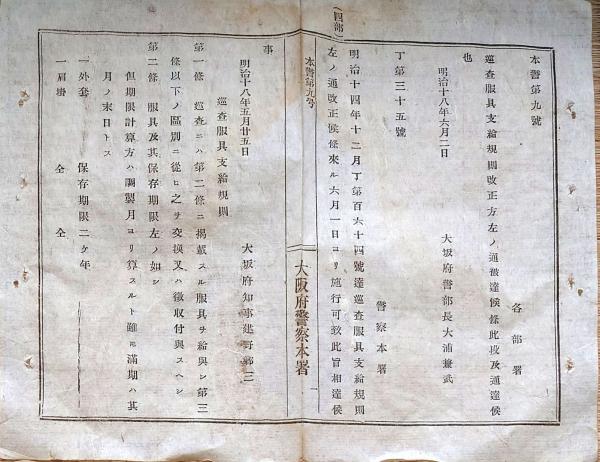 本警第九號
各部署
巡査服具支給規則改正方左ノ通被達候條此段及通達候
也
明治十八年六月二日
大坂府警部長大浦兼武
丁第三十五號
警察本署
明治十四年十二月丁第百六十四號達巡査服具支給規則
左ノ通改正候條來ル六月一日ヨリ施行可致此旨相達候
(四部)
本警第九号
大阪府警察本署
一
事
明治十八年五月廿五日
大坂府知事建野郷三
巡査服具支給規則
第一條 巡査ニハ第二條ニ揭載スル服具ヲ給與シ第三
條以下ノ區別ニ從ヒ之ヲ交換又ハ徵收付與スヘシ
第二條 服具及其保存期限左ノ如シ
但期限計算方ハ調製月ヨリ算スルト雖モ滿期ハ其
月ノ末日トス
一外套 保存期限二ケ年
一肩掛 仝 仝